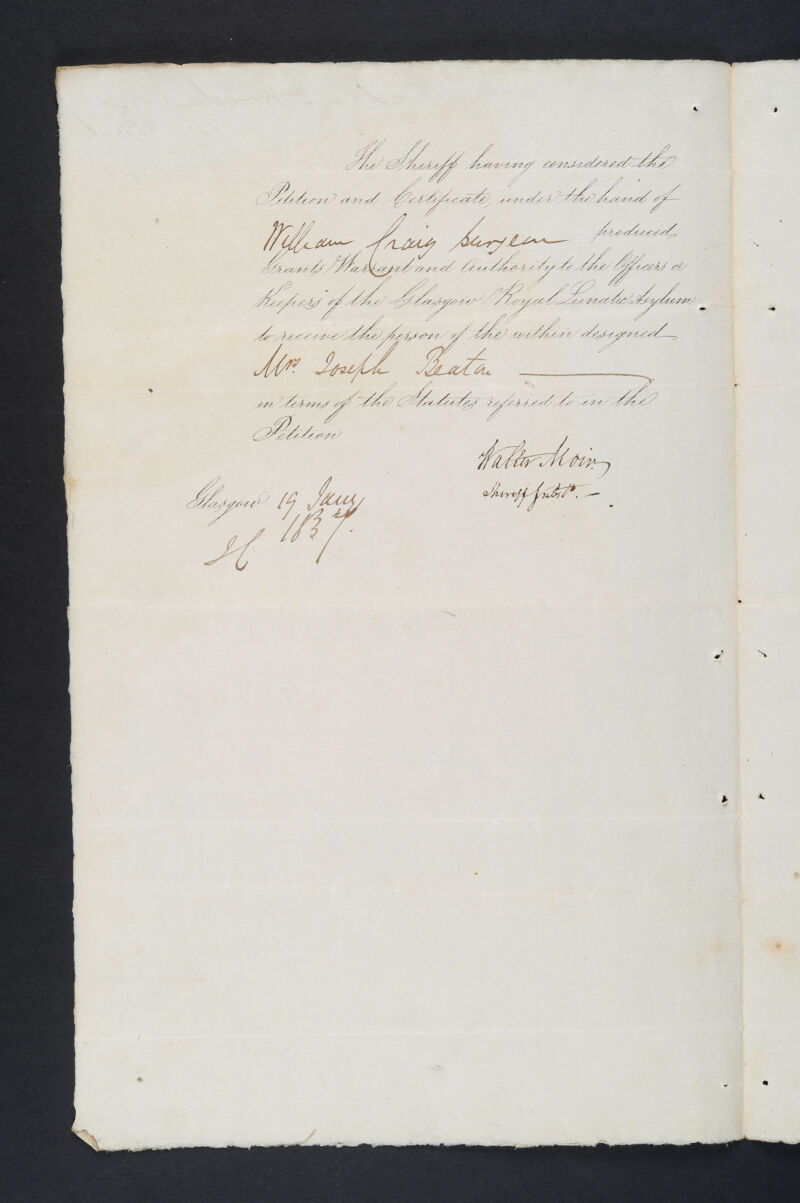 The Sheriff having considered the
Petition and Certificate, under the hand of
William Craig Surgeon produced
Grants Warrant and Authority to the Officers or
Keepers of the Glasgow Royal Lunatic Asylum
to receive the person of the within designed
Mrs. Joseph Beaton
in terms of the Statutes referred to in the
Petition
Walter Moir
Sheriff Subste. —
Glasgow 19 Jany
1837.